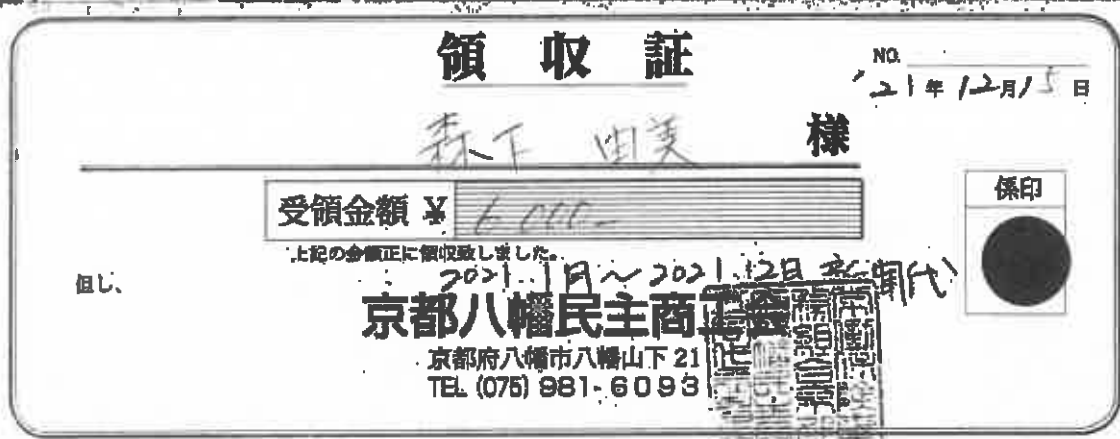 領収証
NO.
'21年12月15日
森下 由美 様
受領金額 ¥ 6,000-
上記の金額正に領収致しました。
係印
但し、 2021.1月〜2021.12月 新聞代
京都八幡民主商工会
京都府八幡市八幡山下21
TEL (075) 981-6093